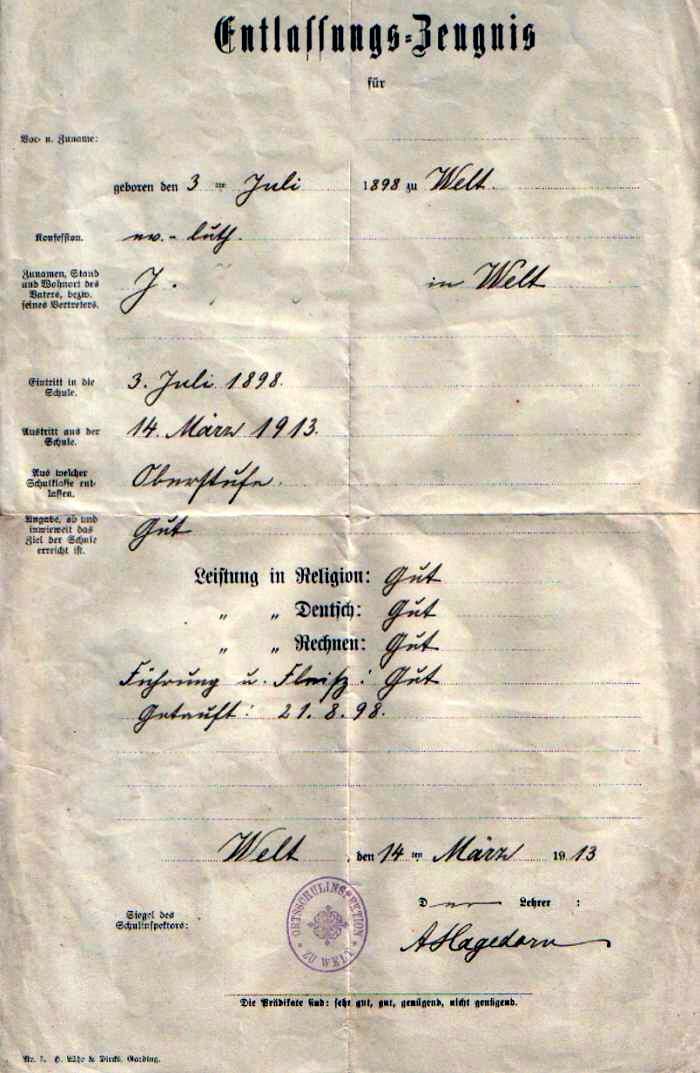 Entlassungs-Zeugnis
für
Vor- u. Zuname:
geboren den 3ten Juli 1898 zu Welt.
Konfession. ev.-luth.
Zunamen, Stand
und Wohnort des
Vaters, bezw.
seines Vertreters.
J. in Welt
Eintritt in die
Schule.
3. Juli 1898.
Austritt aus der
Schule.
14. März 1913.
Aus welcher
Schulklasse ent-
lassen.
Oberstufe.
Angabe, ob und
inwieweit das
Ziel der Schule
erreicht ist.
Gut
Leistung in Religion: Gut
" " Deutsch: Gut
" " Rechnen: Gut
Führung u. Fleiß: Gut
Getauft: 21.8.98.
Welt, den 14ten März 1913
Siegel des
Schulinspektors:
ORTSSCHULINSPEKTION
ZU WELT
Der Lehrer:
A Hagedorn
Die Prädikate sind: sehr gut, gut, genügend, nicht genügend.
H. Lühr & Dircks, Garding.